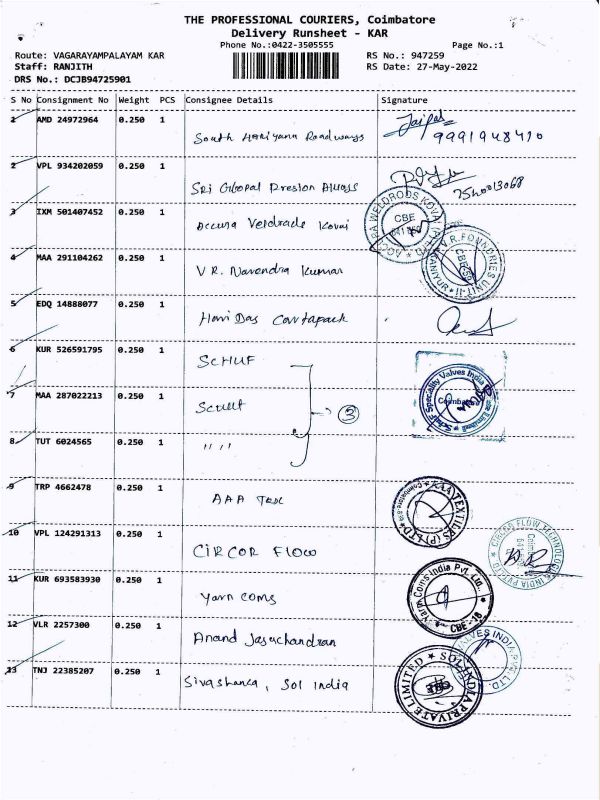 THE PROFESSIONAL COURIERS, Coimbatore
Delivery Runsheet - KAR
Phone No.:0422-3505555 Page No.:1
Route: VAGARAYAMPALAYAM KAR RS No.: 947259
Staff: RANJITH RS Date: 27-May-2022
DRS No.: DCJB94725901
S No Consignment No Weight PCS Consignee Details Signature
1 AMD 24972964 0.250 1
South Hariyana Roadways 9991948710
2 VPL 934202059 0.250 1
Sri Gopal
3 IXM 501407452 0.250 1
Kovai
CBE
4 MAA 291104262 0.250 1
V R. Narendra Kumar
V.R. FOUNDRIES UNIT-II
5 EDQ 14888077 0.250 1
Hari Das
6 KUR 526591795 0.250 1
SCHUF
7 MAA 287022213 0.250 1
3
Speciality Valves India
8 TUT 6024565 0.250 1
" "
9 TRP 4662478 0.250 1
AAA Tex
TEXTILES (P) LTD
10 VPL 124291313 0.250 1
CIRCOR FLOW
CIRCOR FLOW TECHNOLOGIES INDIA PVT. LTD
11 KUR 693583930 0.250 1
Yarn Coms
Yarn Coms India Pvt. Ltd.,
CBE-18
12 VLR 2257300 0.250 1
Anand
13 TNJ 22385207 0.250 1
Sol India
SOL INDIA PRIVATE LIMITED